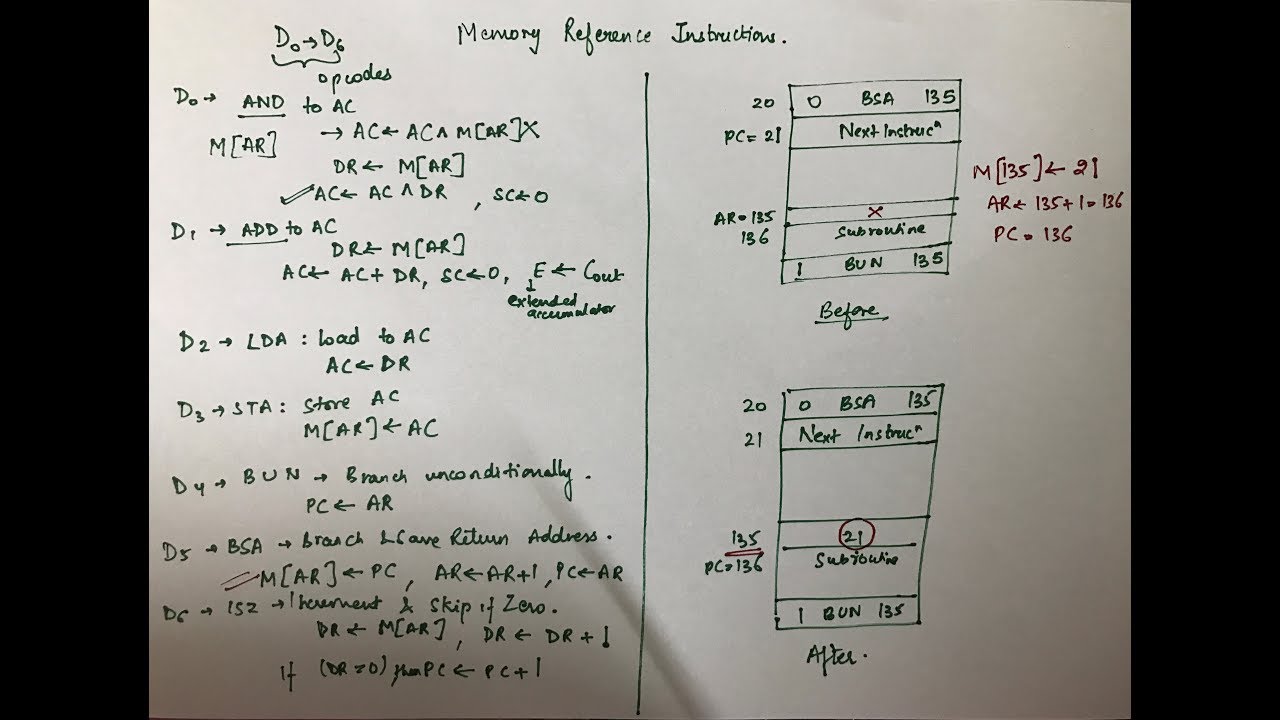 Memory Reference Instructions.
D0→D6
opcodes
D0→ AND to AC
M[AR] → AC← AC ∧ M[AR] X
DR← M[AR]
✓AC← AC ∧ DR , SC←0
D1 → ADD to AC
DR← M[AR]
AC← AC+ DR, SC←0, E ← Cout
↓
extended
accumulator
D2 → LDA : Load to AC
AC← DR
D3 → STA : Store AC
M[AR] ← AC
D4 → BUN → Branch unconditionally.
PC ← AR
D5 → BSA → Branch & Save Return Address.
M[AR] ← PC, AR←AR+1, PC←AR
D6 → ISZ → Increment & Skip if Zero.
DR ← M[AR], DR ← DR + 1
If (DR=0) then PC ← PC + 1
20 0 BSA 135
PC = 21 Next Instrucn
M[135] ← 21
AR = 135 X
AR ← 135+1=136
136 Subroutine
PC = 136
1 BUN 135
Before
20 0 BSA 135
21 Next Instrucn
135 21
PC=136 Subroutine
1 BUN 135
After.